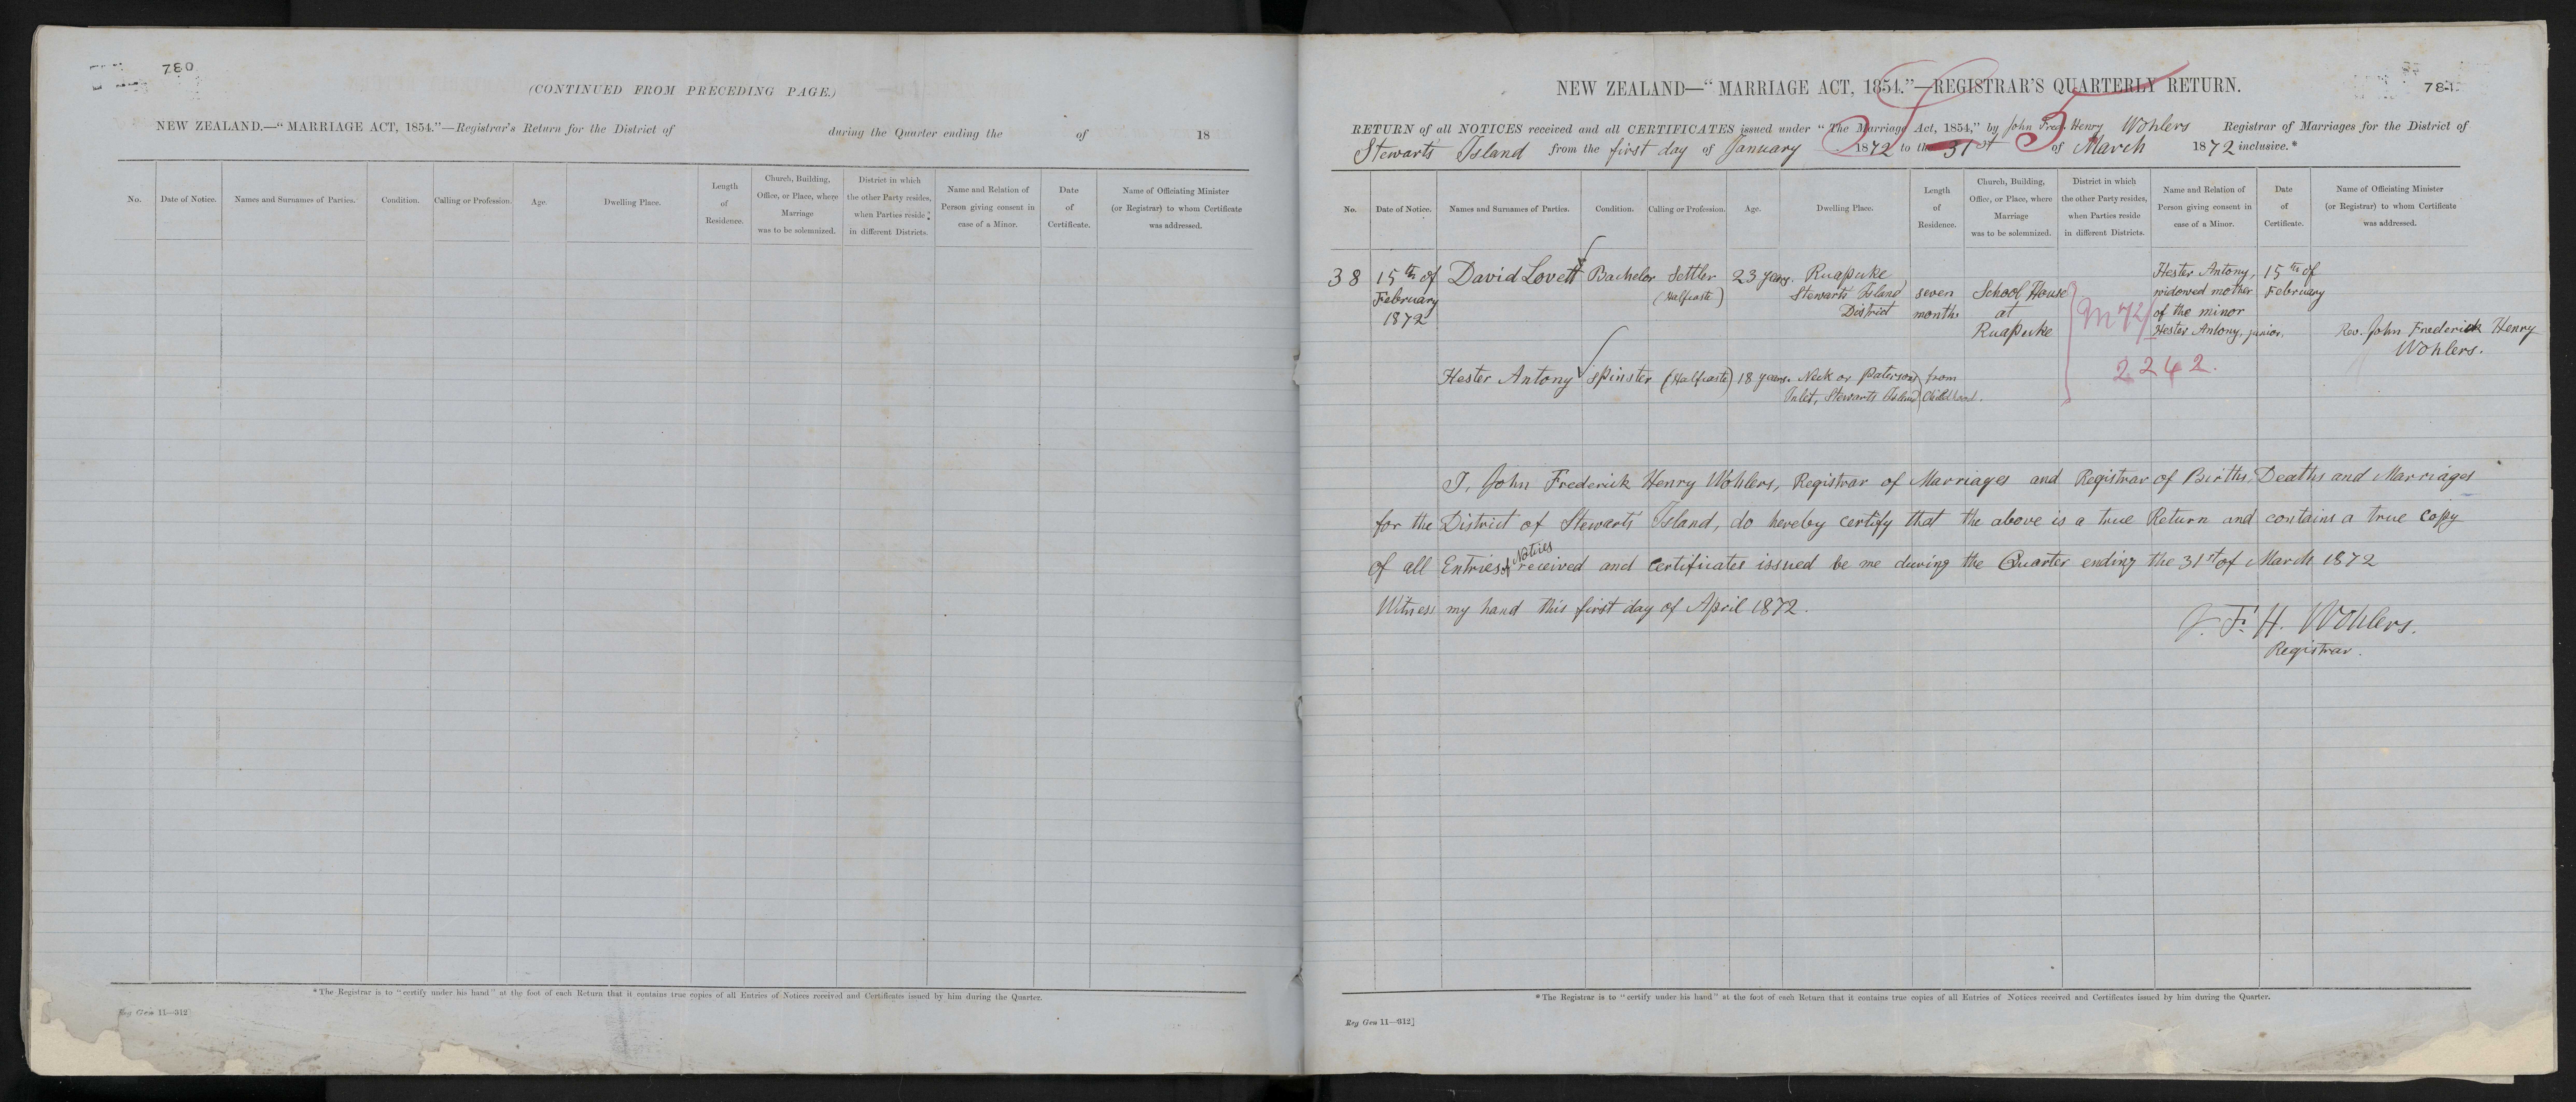 780
(CONTINUED FROM PRECEDING PAGE.)
NEW ZEALAND.—"MARRIAGE ACT, 1854."—Registrar's Return for the District of during the Quarter ending the of 18
No.
Date of Notice.
Names and Surnames of Parties.
Condition.
Calling or Profession.
Age.
Dwelling Place.
Length
of
Residence.
Church, Building,
Office, or Place, where
Marriage
was to be solemnized.
District in which
the other Party resides,
when Parties reside
in different Districts.
Name and Relation of
Person giving consent in
case of a Minor.
Date
of
Certificate.
Name of Officiating Minister
(or Registrar) to whom Certificate
was addressed.
*The Registrar is to "certify under his hand" at the foot of each Return that it contains true copies of all Entries of Notices received and Certificates issued by him during the Quarter.
Reg Gen 11—312]
781
NEW ZEALAND—"MARRIAGE ACT, 1854."—REGISTRAR'S QUARTERLY RETURN.
RETURN of all NOTICES received and all CERTIFICATES issued under "The Marriage Act, 1854," by John Fred. Henry Wohlers Registrar of Marriages for the District of
Stewarts Island from the first day of January 1872 to the 31st of March 1872 inclusive.*
No.
Date of Notice.
Names and Surnames of Parties.
Condition.
Calling or Profession.
Age.
Dwelling Place.
Length
of
Residence.
Church, Building,
Office, or Place, where
Marriage
was to be solemnized.
District in which
the other Party resides,
when Parties reside
in different Districts.
Name and Relation of
Person giving consent in
case of a Minor.
Date
of
Certificate.
Name of Officiating Minister
(or Registrar) to whom Certificate
was addressed.
38
15th of
February
1872
David Lovett
Bachelor
Settler
(Halfcaste)
23 years.
Ruapuke
Stewarts Island
District
seven
months
School House
at
Ruapuke
M 72/
2242.
Hester Antony,
widowed mother
of the minor
Hester Antony, junior.
15th of
February
Rev. John Frederick Henry
Wohlers.
Hester Antony
spinster
(Halfcaste)
18 years.
Neck or Patersons
Inlet, Stewarts Island
from
Childhood.
I, John Frederick Henry Wohlers, Registrar of Marriages and Registrar of Births, Deaths and Marriages
for the District of Stewarts Island, do hereby certify that the above is a true Return and contains a true copy
of all Entries of Notices received and Certificates issued be me during the Quarter ending the 31st of March 1872
Witness my hand this first day of April 1872.
J. F. H. Wohlers.
Registrar.
*The Registrar is to "certify under his hand" at the foot of each Return that it contains true copies of all Entries of Notices received and Certificates issued by him during the Quarter.
Reg Gen 11—312]